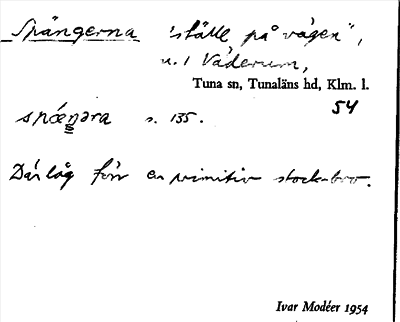 Spängerna "ställe på vägen",
n. i Väderum,
Tuna sn, Tunaläns hd, Klm. l.
54
spæŋəra s. 135.
Där låg förr en primitiv stockbro.
Ivar Modéer 1954